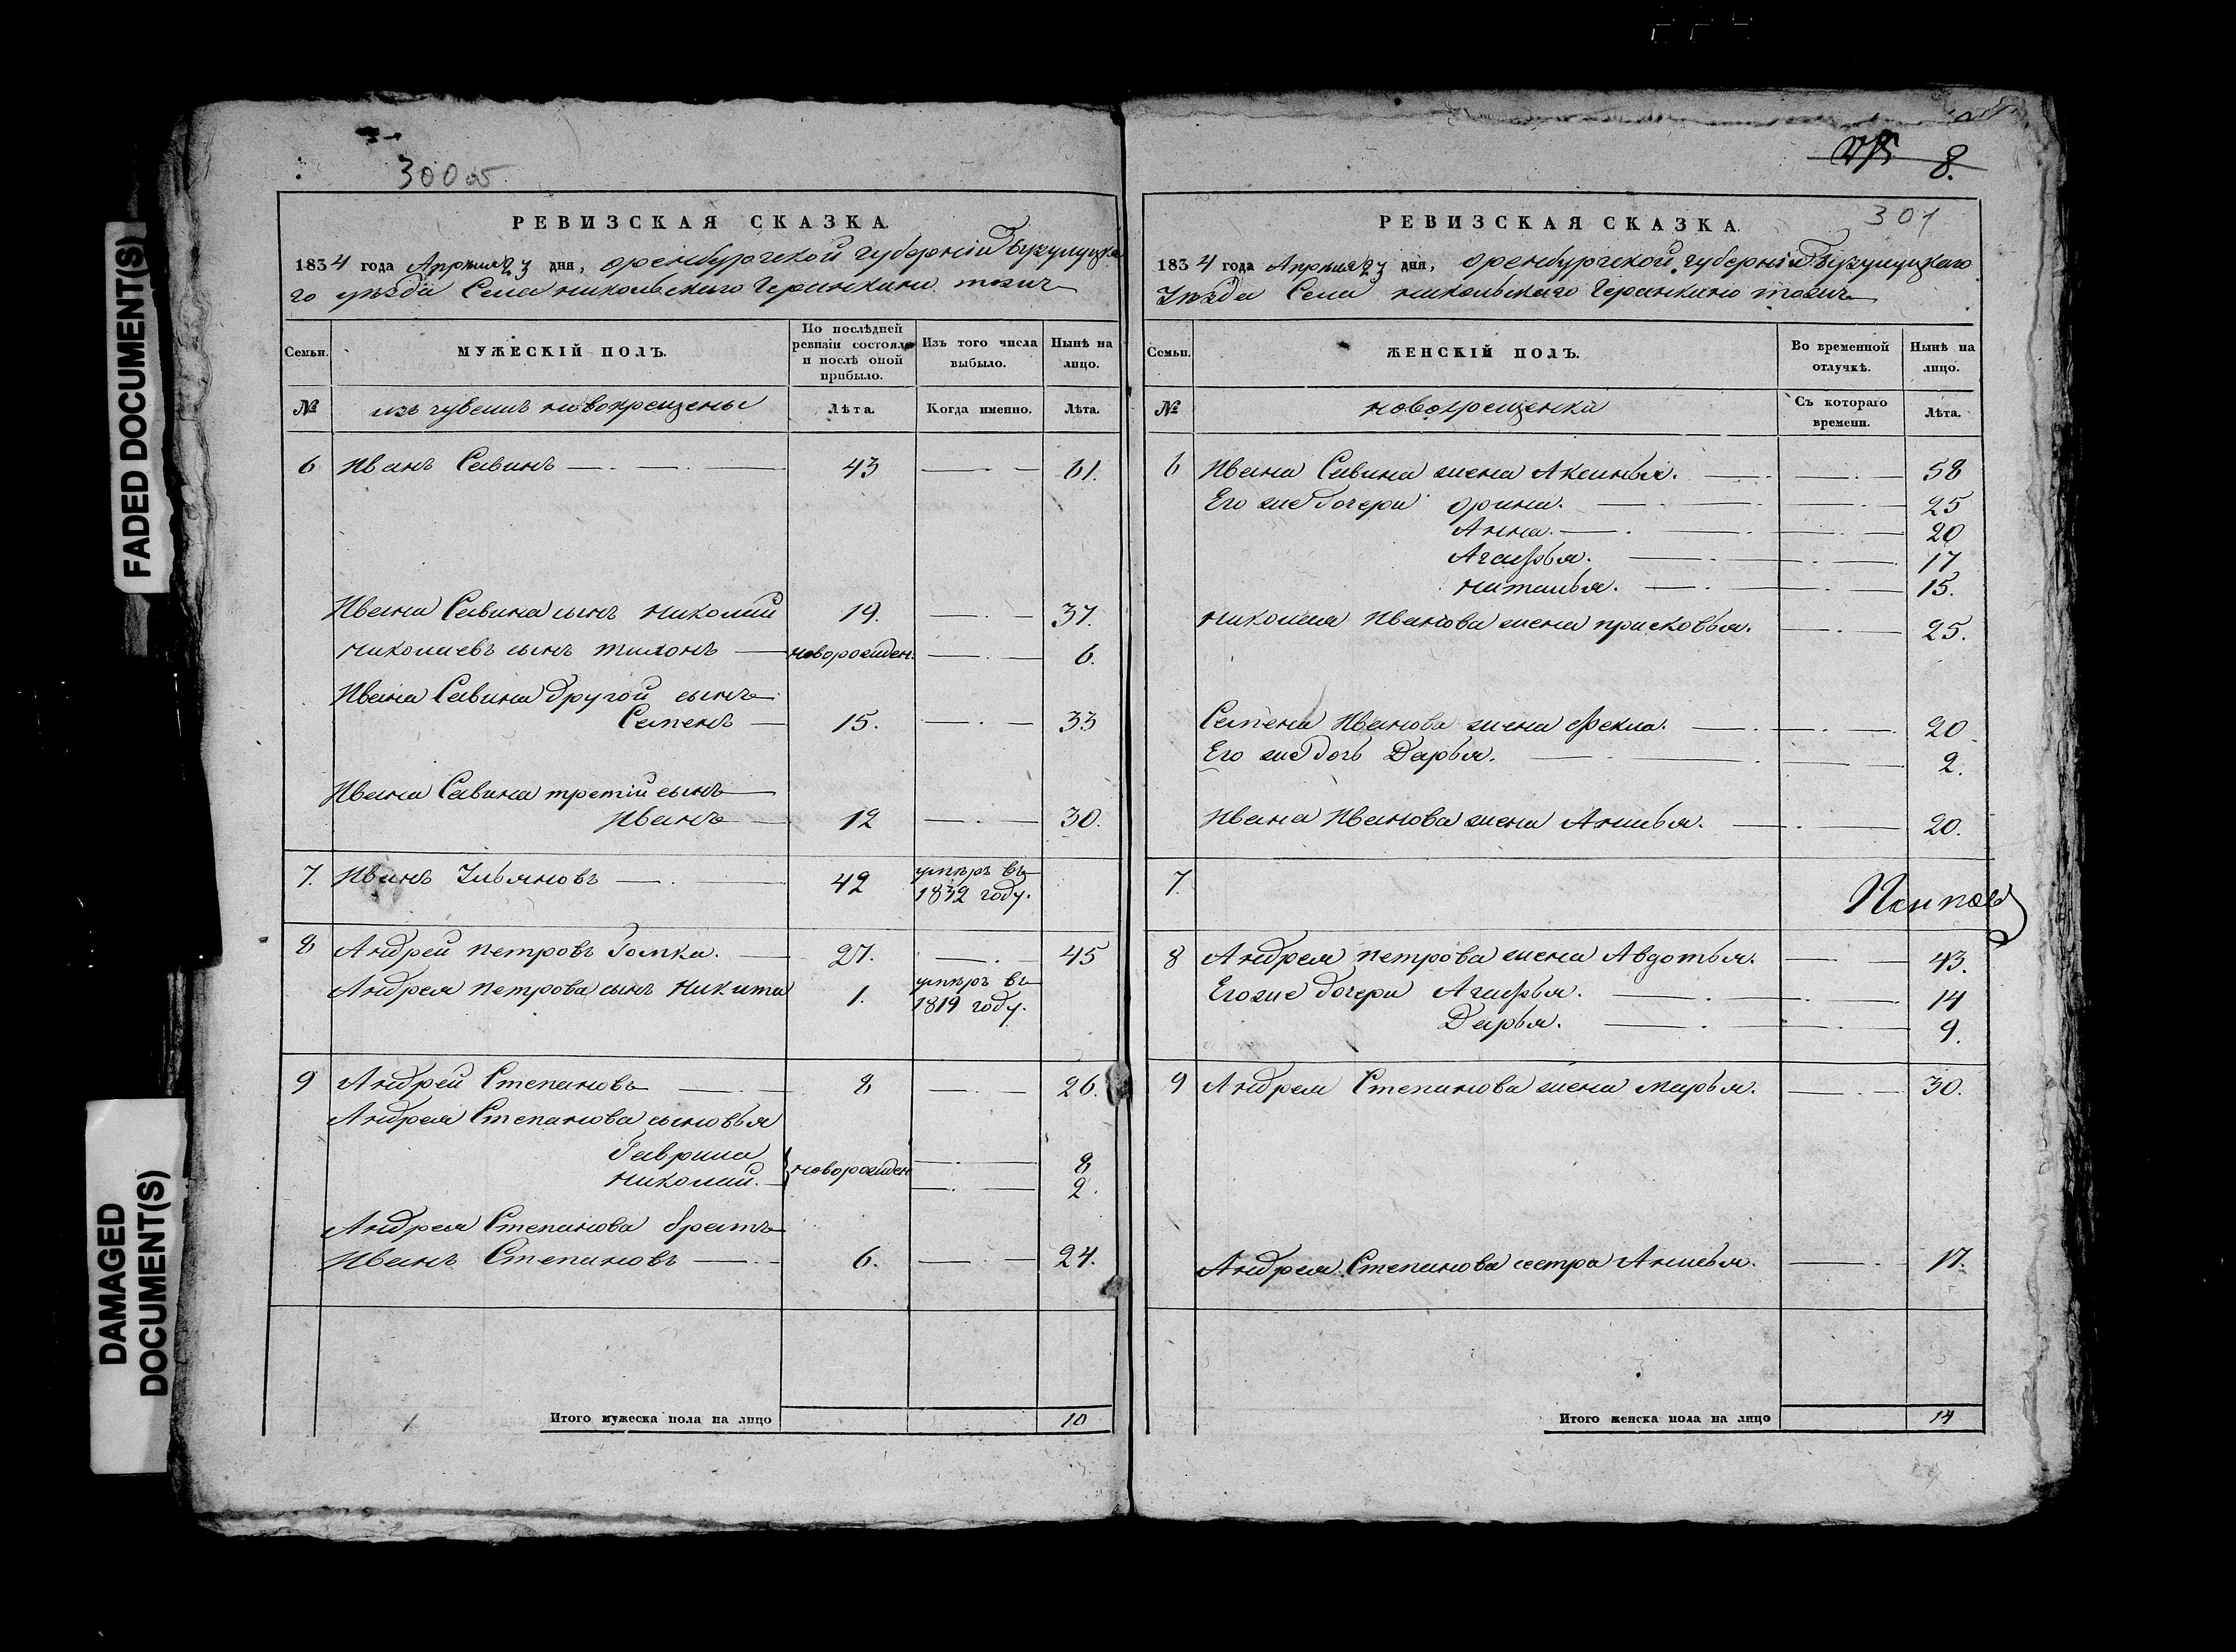 300 об
РЕВИЗСКАЯ СКАЗКА.
1834 года Апрѣля 23 дня, Оренбургской губерніи Бузулуцка
го уѣзда Села Никольскаго Черинкино тожъ
Семьи.
МУЖЕСКІЙ ПОЛЪ.
По послѣдней ревизіи состояло и послѣ оной прибыло.
Изъ того числа выбыло.
Нынѣ на лицо.
№
изъ чувашъ новокрещены
Лѣта.
Когда именно.
Лѣта.
6 Иванъ Савинъ 43 61.
Ивана Савина сынъ Николай 19. 37.
Николаевъ сынъ Тихонъ новорожден. 6.
Ивана Савина другой сынъ
Семенъ 15. 33
Ивана Савина третій сынъ
Иванъ 12 30.
7. Иванъ Ульяновъ 42 умѣръ въ
1832 году.
8 Андрей Петровъ Гомка. 27. 45
Андрея Петрова сынъ Никита 1. умѣръ въ
1819 году.
9 Андрей Степановъ 8 26.
Андрея Степанова сыновья
Гаврила 8
новорожден
Николай. 2.
Андрея Степанова братъ
Иванъ Степановъ 6. 24.
Итого мужеска пола на лицо 10
8.
301
РЕВИЗСКАЯ СКАЗКА.
1834 года Апрѣля 23 дня, Оренбургской губерніи Бузулуцкаго
Уѣзда Села Никольскаго Черинкино тожъ
Семьи.
ЖЕНСКІЙ ПОЛЪ.
Во временной отлучкѣ.
Нынѣ на лицо.
№
новокрещенки
Съ котораго времени.
Лѣта.
6 Ивана Савина жена Аксинья. 58
Его же дочери Орина. 25
Анна. 20
Агафья. 17
Наталья. 15.
Николая Иванова жена Присковья. 25.
Семена Иванова жена Фекла. 20
Его же дочь Дарья. 2.
Ивана Иванова жена Анисья. 20.
7.
8 Андрея Петрова жена Авдотья. 43.
Его же дочери Агафья. 14
Дарья. 9.
9 Андрея Степанова жена Марья. 30.
Андрея Степанова сестра Анисья. 17.
Итого женска пола на лицо 14
FADED DOCUMENT(S)
DAMAGED
DOCUMENT(S)